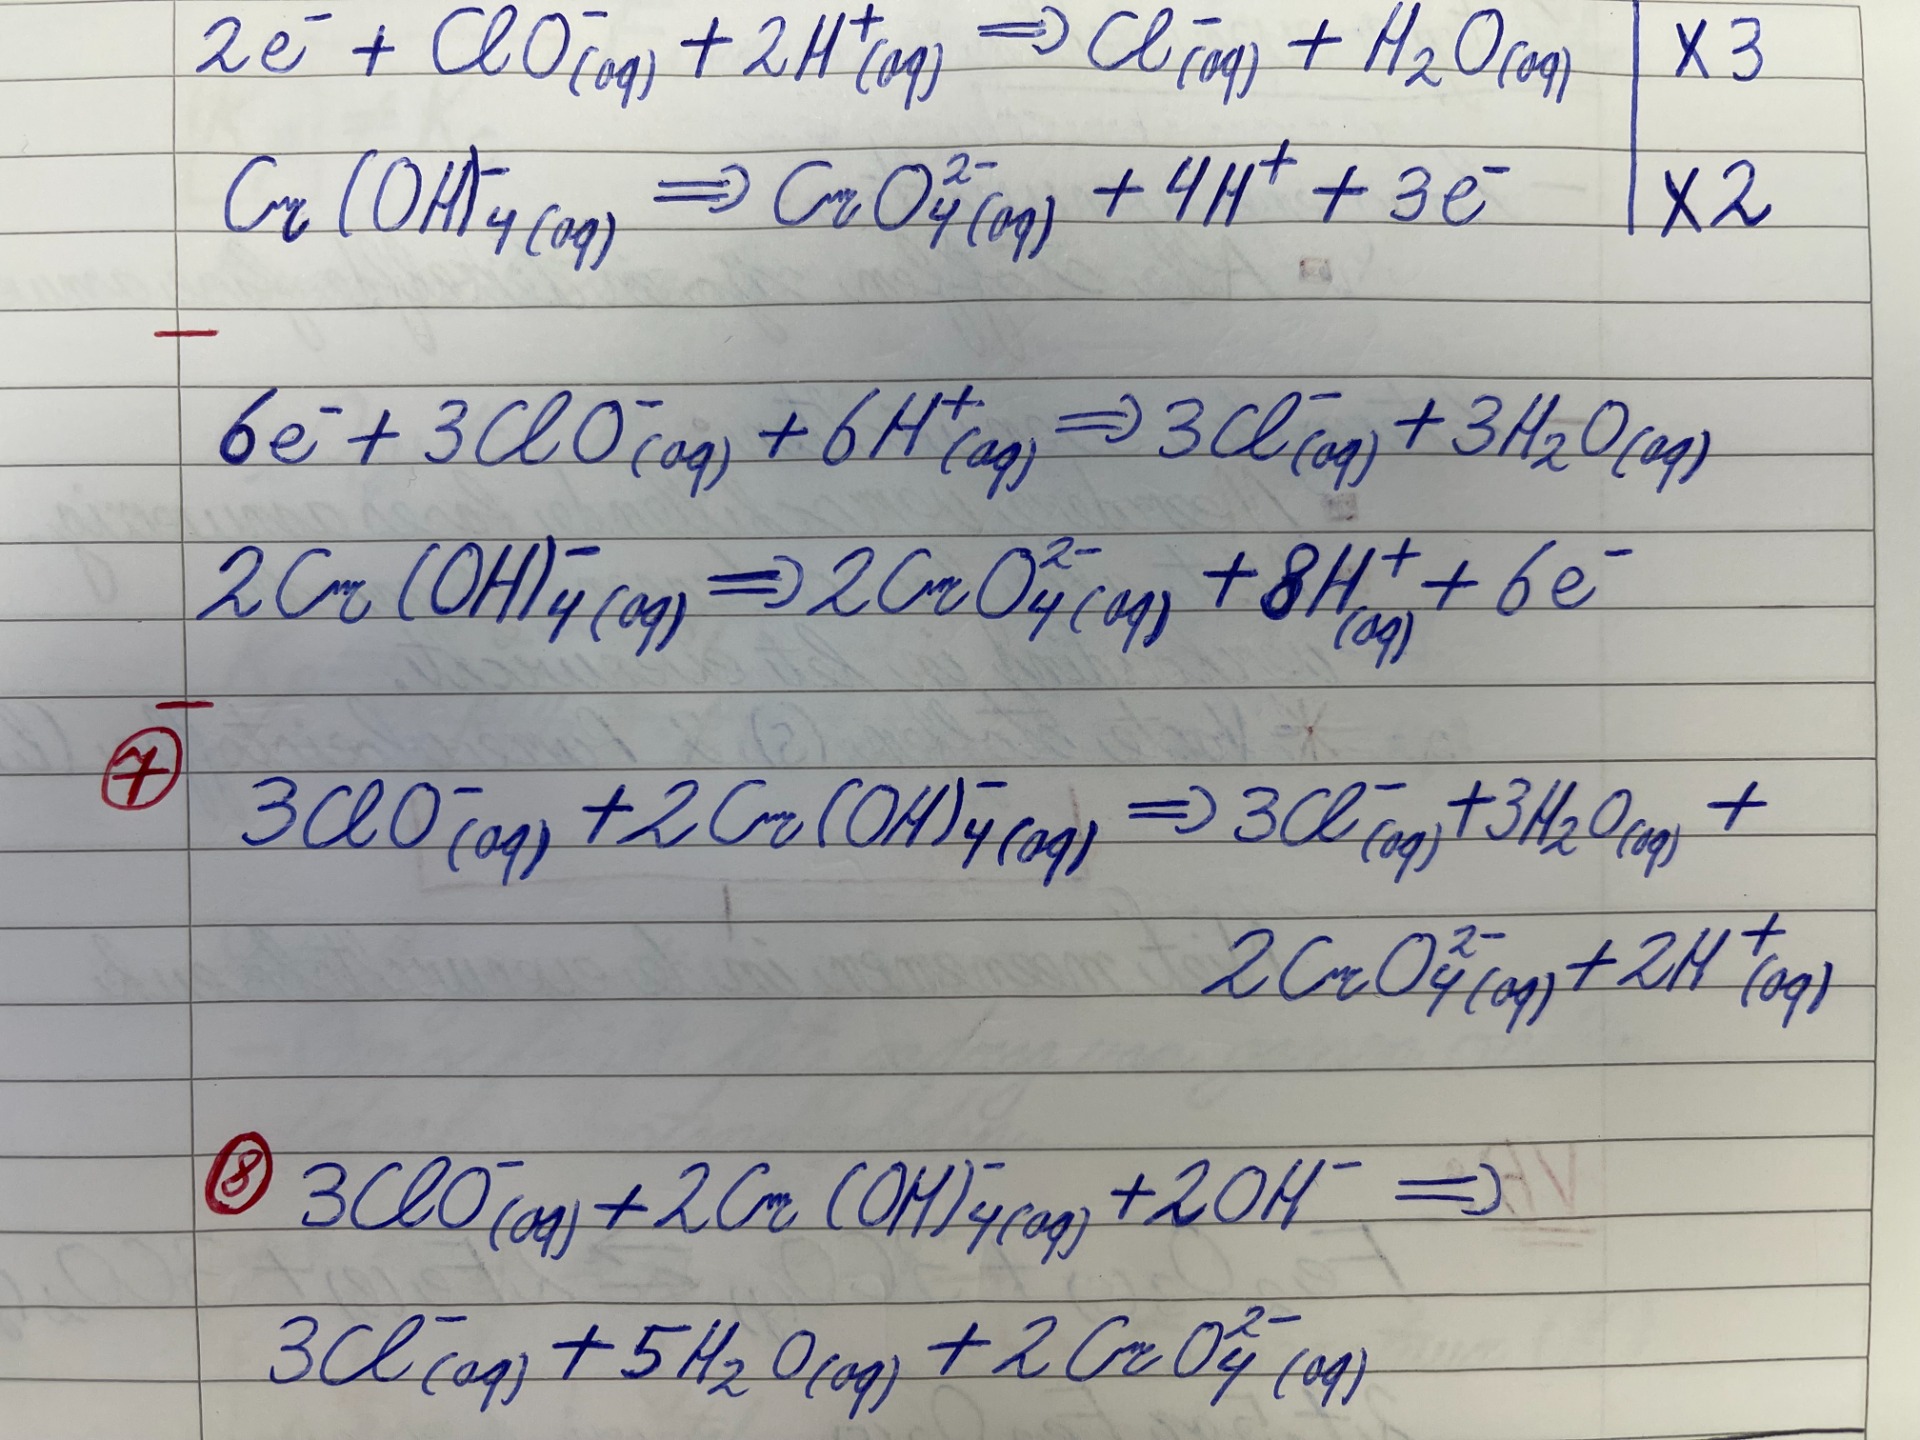 2e⁻ + ClO⁻(aq) + 2H⁺(aq) ⇒ Cl⁻(aq) + H₂O(aq) | x3
Cr(OH)₄⁻(aq) ⇒ CrO₄²⁻(aq) + 4H⁺ + 3e⁻ | x2
6e⁻ + 3ClO⁻(aq) + 6H⁺(aq) ⇒ 3Cl⁻(aq) + 3H₂O(aq)
2Cr(OH)₄⁻(aq) ⇒ 2CrO₄²⁻(aq) + 8H⁺(aq) + 6e⁻
7
3ClO⁻(aq) + 2Cr(OH)₄⁻(aq) ⇒ 3Cl⁻(aq) + 3H₂O(aq) +
2CrO₄²⁻(aq) + 2H⁺(aq)
8 3ClO⁻(aq) + 2Cr(OH)₄⁻(aq) + 2OH⁻ ⇒
3Cl⁻(aq) + 5H₂O(aq) + 2CrO₄²⁻(aq)